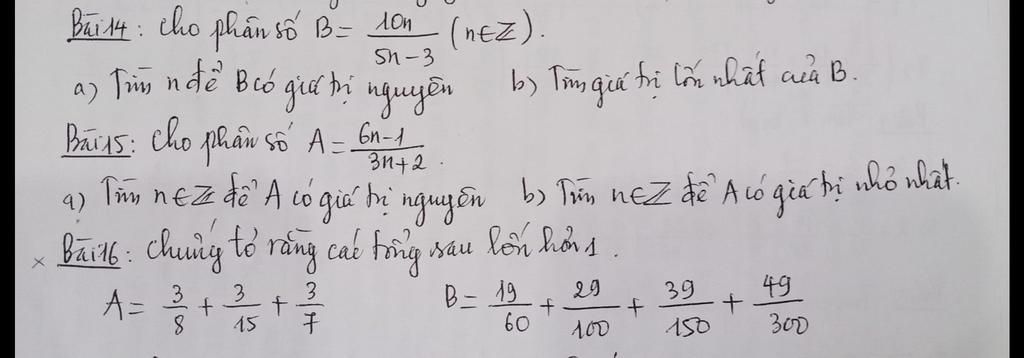 Bài 14: Cho phân số B = 10n / 5n-3 (n∈Z).
a) Tìm n để B có giá trị nguyên b) Tìm giá trị lớn nhất của B.
Bài 15: Cho phân số A = 6n-1 / 3n+2.
a) Tìm n∈Z để A có giá trị nguyên b) Tìm n∈Z để A có giá trị nhỏ nhất.
× Bài 16: Chứng tỏ rằng các tổng sau lớn hơn 1.
A = 3/8 + 3/15 + 3/7 B = 19/60 + 29/100 + 39/150 + 49/300